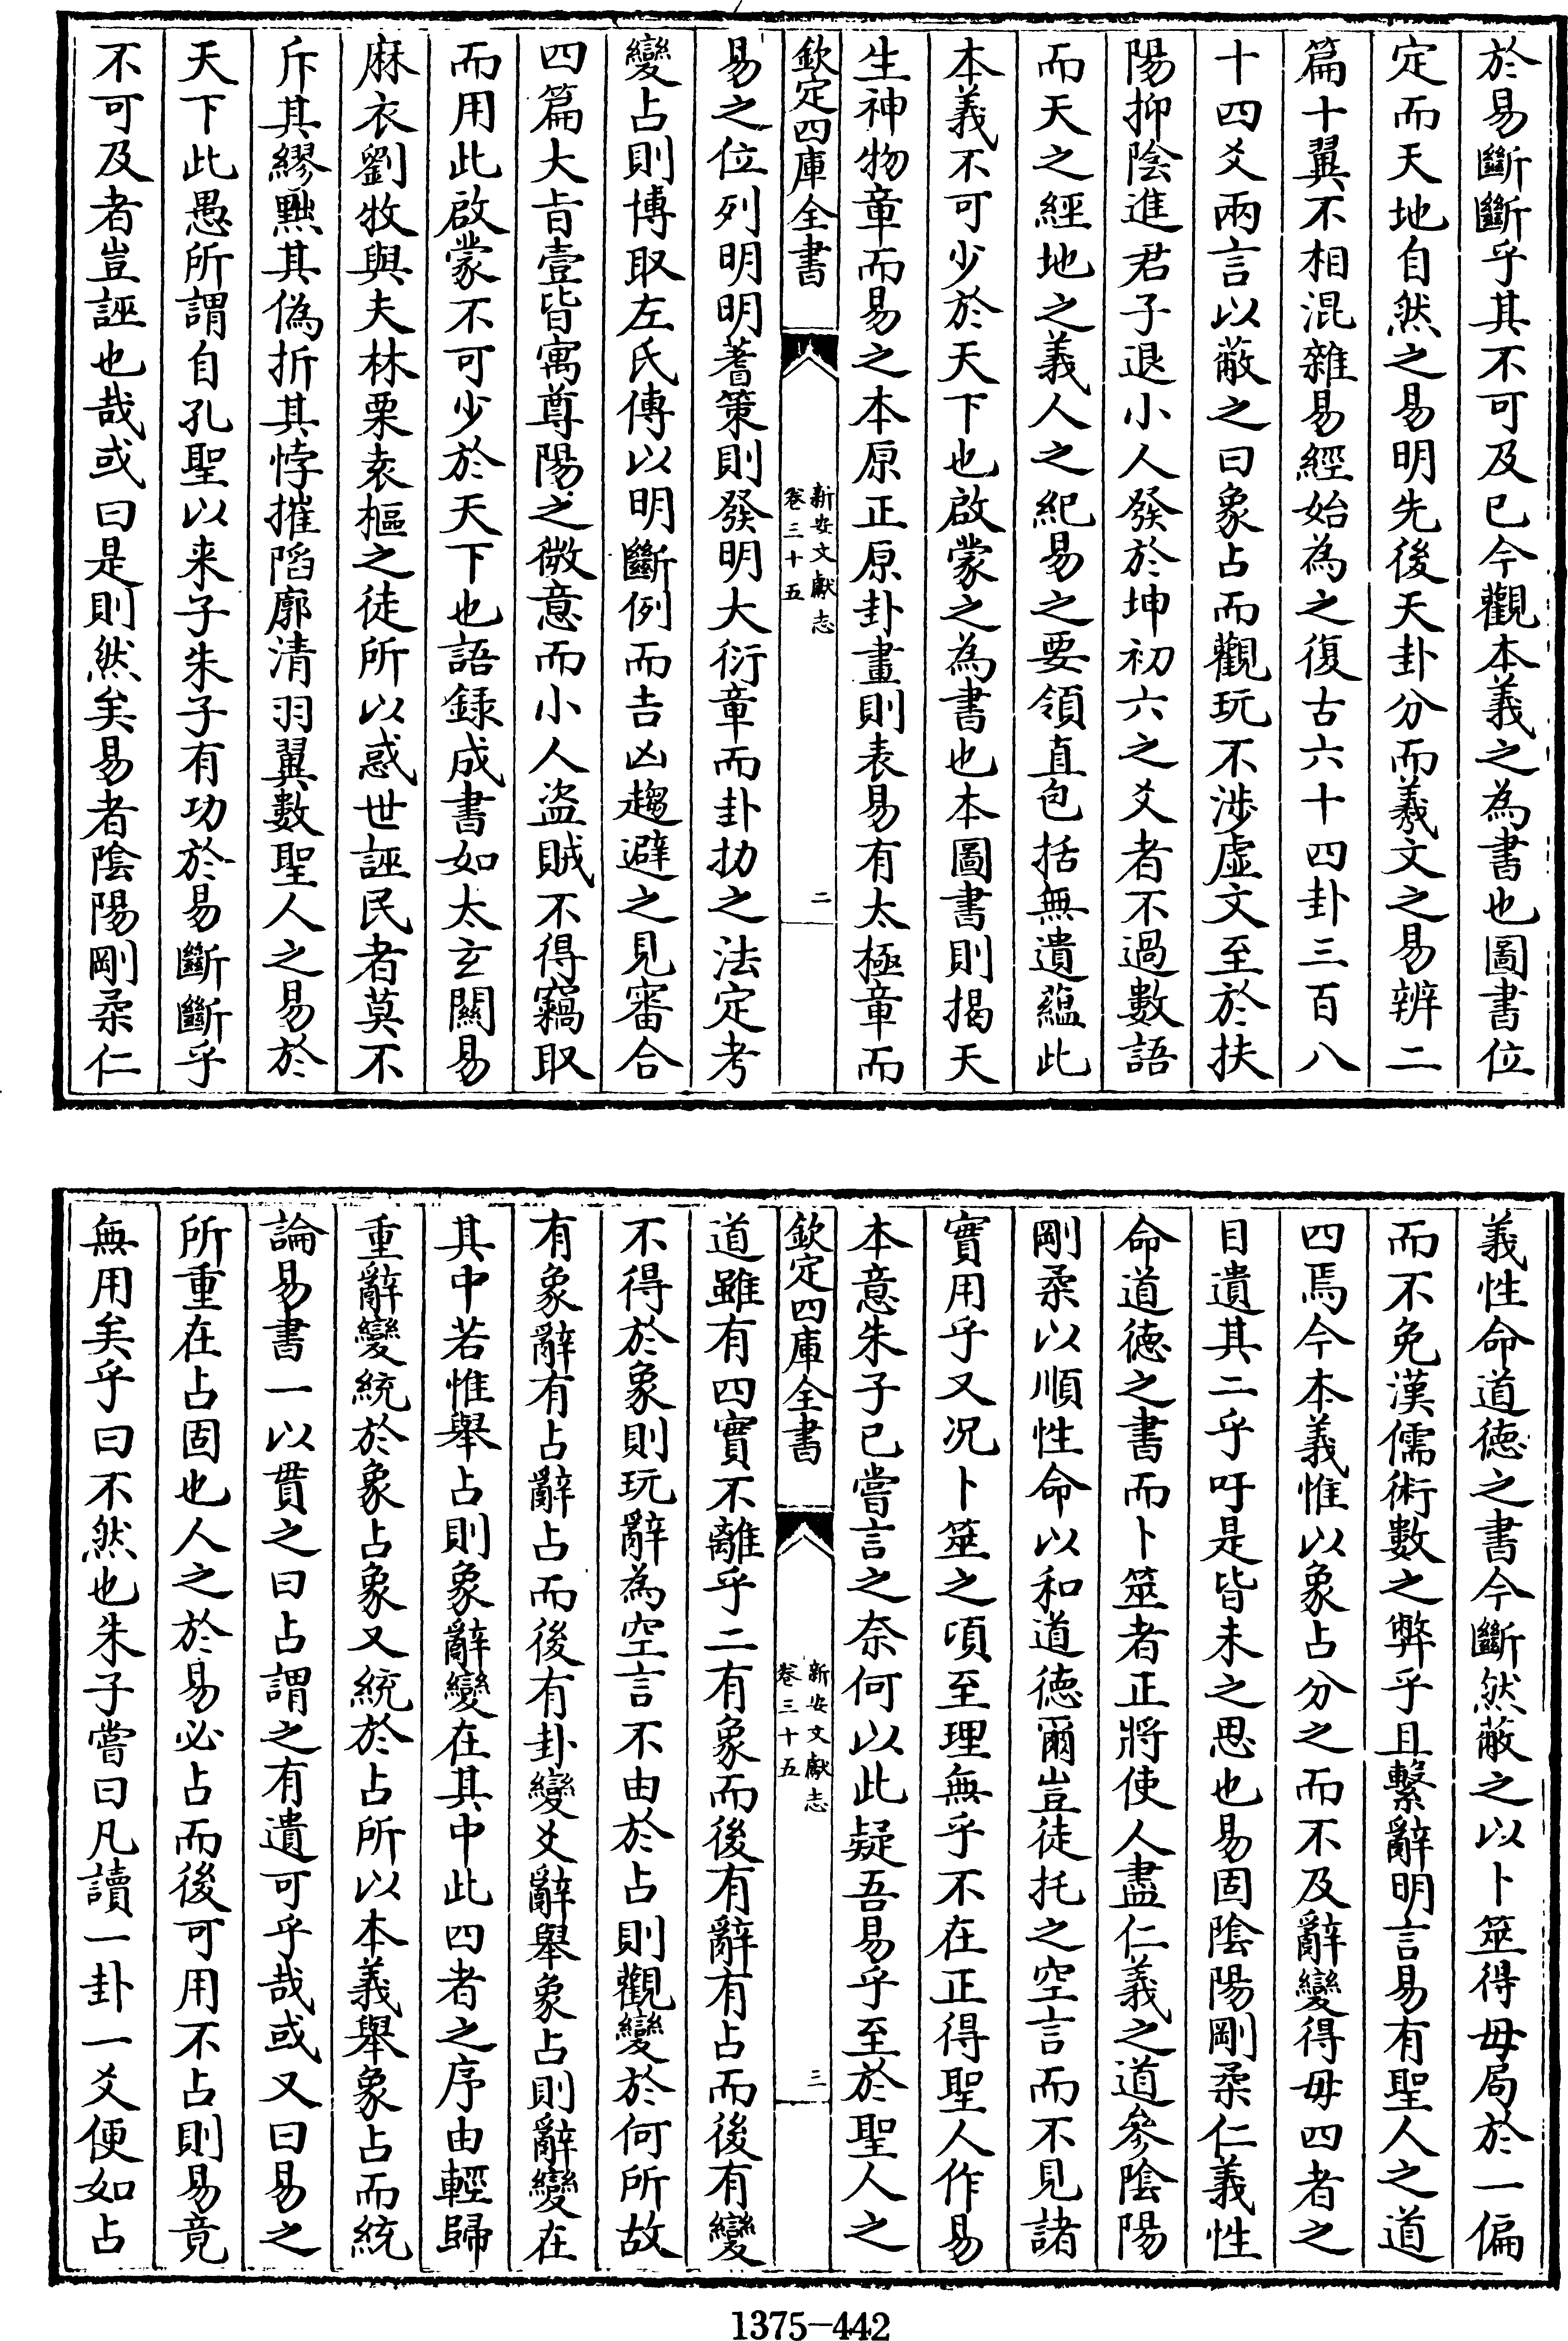 於易斷斷乎其不可及已今觀本義之為書也圖書位
定而天地自然之易明先後天卦分而羲文之易辨二
篇十翼不相混雜易經始為之復古六十四卦三百八
十四爻兩言以蔽之曰象占而觀玩不涉虛文至於扶
陽抑陰進君子退小人發於坤初六之爻者不過數語
而天之經地之義人之紀易之要領直包括無遺蘊此
本義不可少於天下也啟蒙之為書也本圖書則揭天
生神物章而易之本原正原卦畫則表易有太極章而
欽定四庫全書
新安文獻志
卷三十五
二
易之位列明明蓍策則發明大衍章而卦扐之法定考
變占則博取左氏傳以明斷例而吉凶趨避之見審合
四篇大旨壹皆寓尊陽之微意而小人盜賊不得竊取
而用此啟蒙不可少於天下也語錄成書如太玄關易
麻衣劉牧與夫林栗袁樞之徒所以惑世誣民者莫不
斥其繆㸃其偽折其悖摧陷廓清羽翼數聖人之易於
天下此愚所謂自孔聖以来子朱子有功於易斷斷乎
不可及者豈誣也哉或曰是則然矣易者陰陽剛柔仁
義性命道德之書今斷然蔽之以卜筮得毋局於一偏
而不免漢儒術數之弊乎且繫辭明言易有聖人之道
四焉今本義惟以象占分之而不及辭變得毋四者之
目遺其二乎吁是皆未之思也易固陰陽剛柔仁義性
命道德之書而卜筮者正將使人盡仁義之道參陰陽
剛柔以順性命以和道德爾豈徒托之空言而不見諸
實用乎又况卜筮之頃至理無乎不在正得聖人作易
本意朱子已嘗言之奈何以此疑吾易乎至於聖人之
欽定四庫全書
新安文獻志
卷三十五
三
道雖有四實不離乎二有象而後有辭有占而後有變
不得於象則玩辭為空言不由於占則觀變於何所故
有象辭有占辭占而後有卦變爻辭舉象占則辭變在
其中若惟舉占則象辭變在其中此四者之序由輕歸
重辭變統於象占象又統於占所以本義舉象占而統
論易書一以貫之曰占謂之有遺可乎哉或又曰易之
所重在占固也人之於易必占而後可用不占則易竟
無用矣乎曰不然也朱子嘗曰凡讀一卦一爻便如占
1375-442